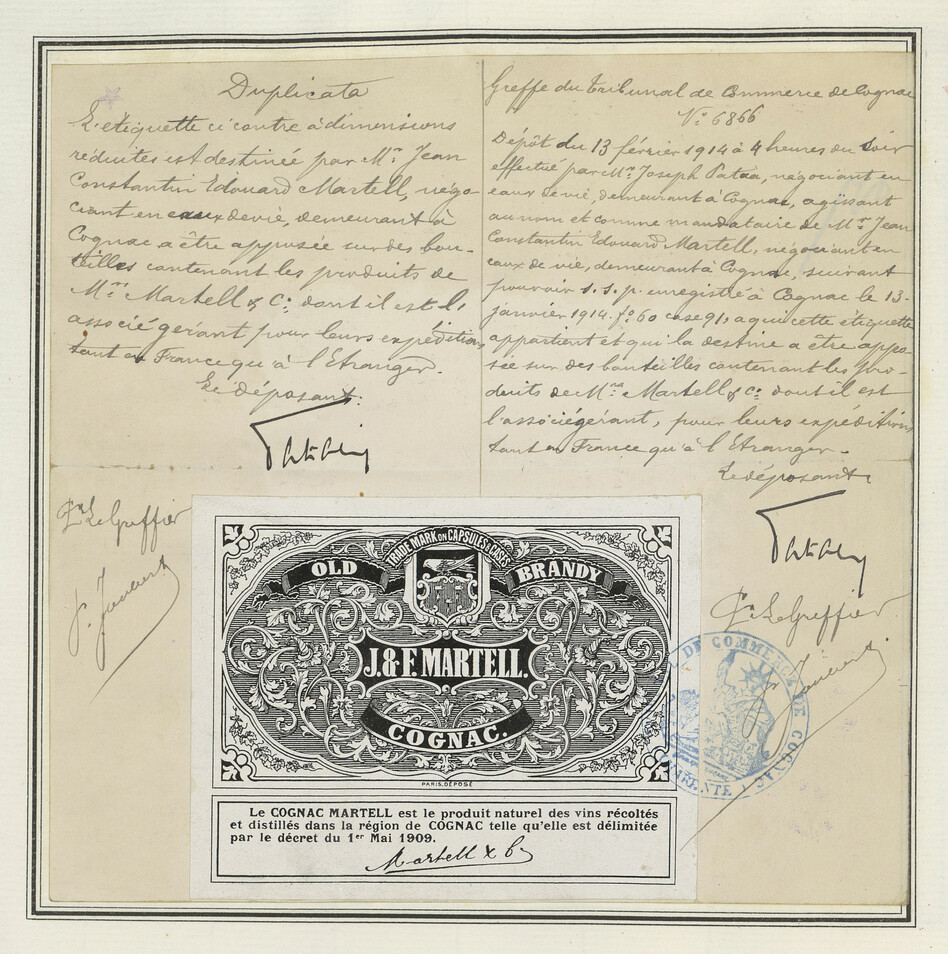 Duplicata
L'étiquette ci contre à dimensions
réduites est destinée par Mr. Jean
Constantin Edouard Martell, négo-
ciant en eaux de vie, demeurant à
Cognac, a être apposée sur des bou-
teilles contenant les produits de
Mrs. Martell & Co. dont il est l'
associé gérant pour leurs expéditions
tant en France qu'à l'Etranger.
Le déposant.
Le Greffier
Greffe du Tribunal de Commerce de Cognac
No. 6866
Dépôt du 13 février 1914 à 4 heures du soir
effectué par Mr. Joseph, négociant en
eaux de vie, demeurant à Cognac, agissant
au nom et comme mandataire de Mr. Jean
Constantin Edouard Martell, négociant en
eaux de vie, demeurant à Cognac, suivant
pouvoir s.s.p. enregistré à Cognac le 13
janvier 1914. fo 60 case 91, a qui cette étiquette
appartient et qui la destine a être appo-
sée sur des bouteilles contenant les pro-
duits de Mrs. Martell & Co. dont il est
l'associé gérant, pour leurs expéditions
tant en France qu'à l'Etranger.
Le déposant
Le Greffier
TRADE MARK ON CAPSULES & CASES
OLD BRANDY
J. & F. MARTELL.
COGNAC.
PARIS, DÉPOSÉ
Le COGNAC MARTELL est le produit naturel des vins récoltés
et distillés dans la région de COGNAC telle qu'elle est délimitée
par le décret du 1er Mai 1909.
Martell & Co
DE COMMERCE DE COGNAC